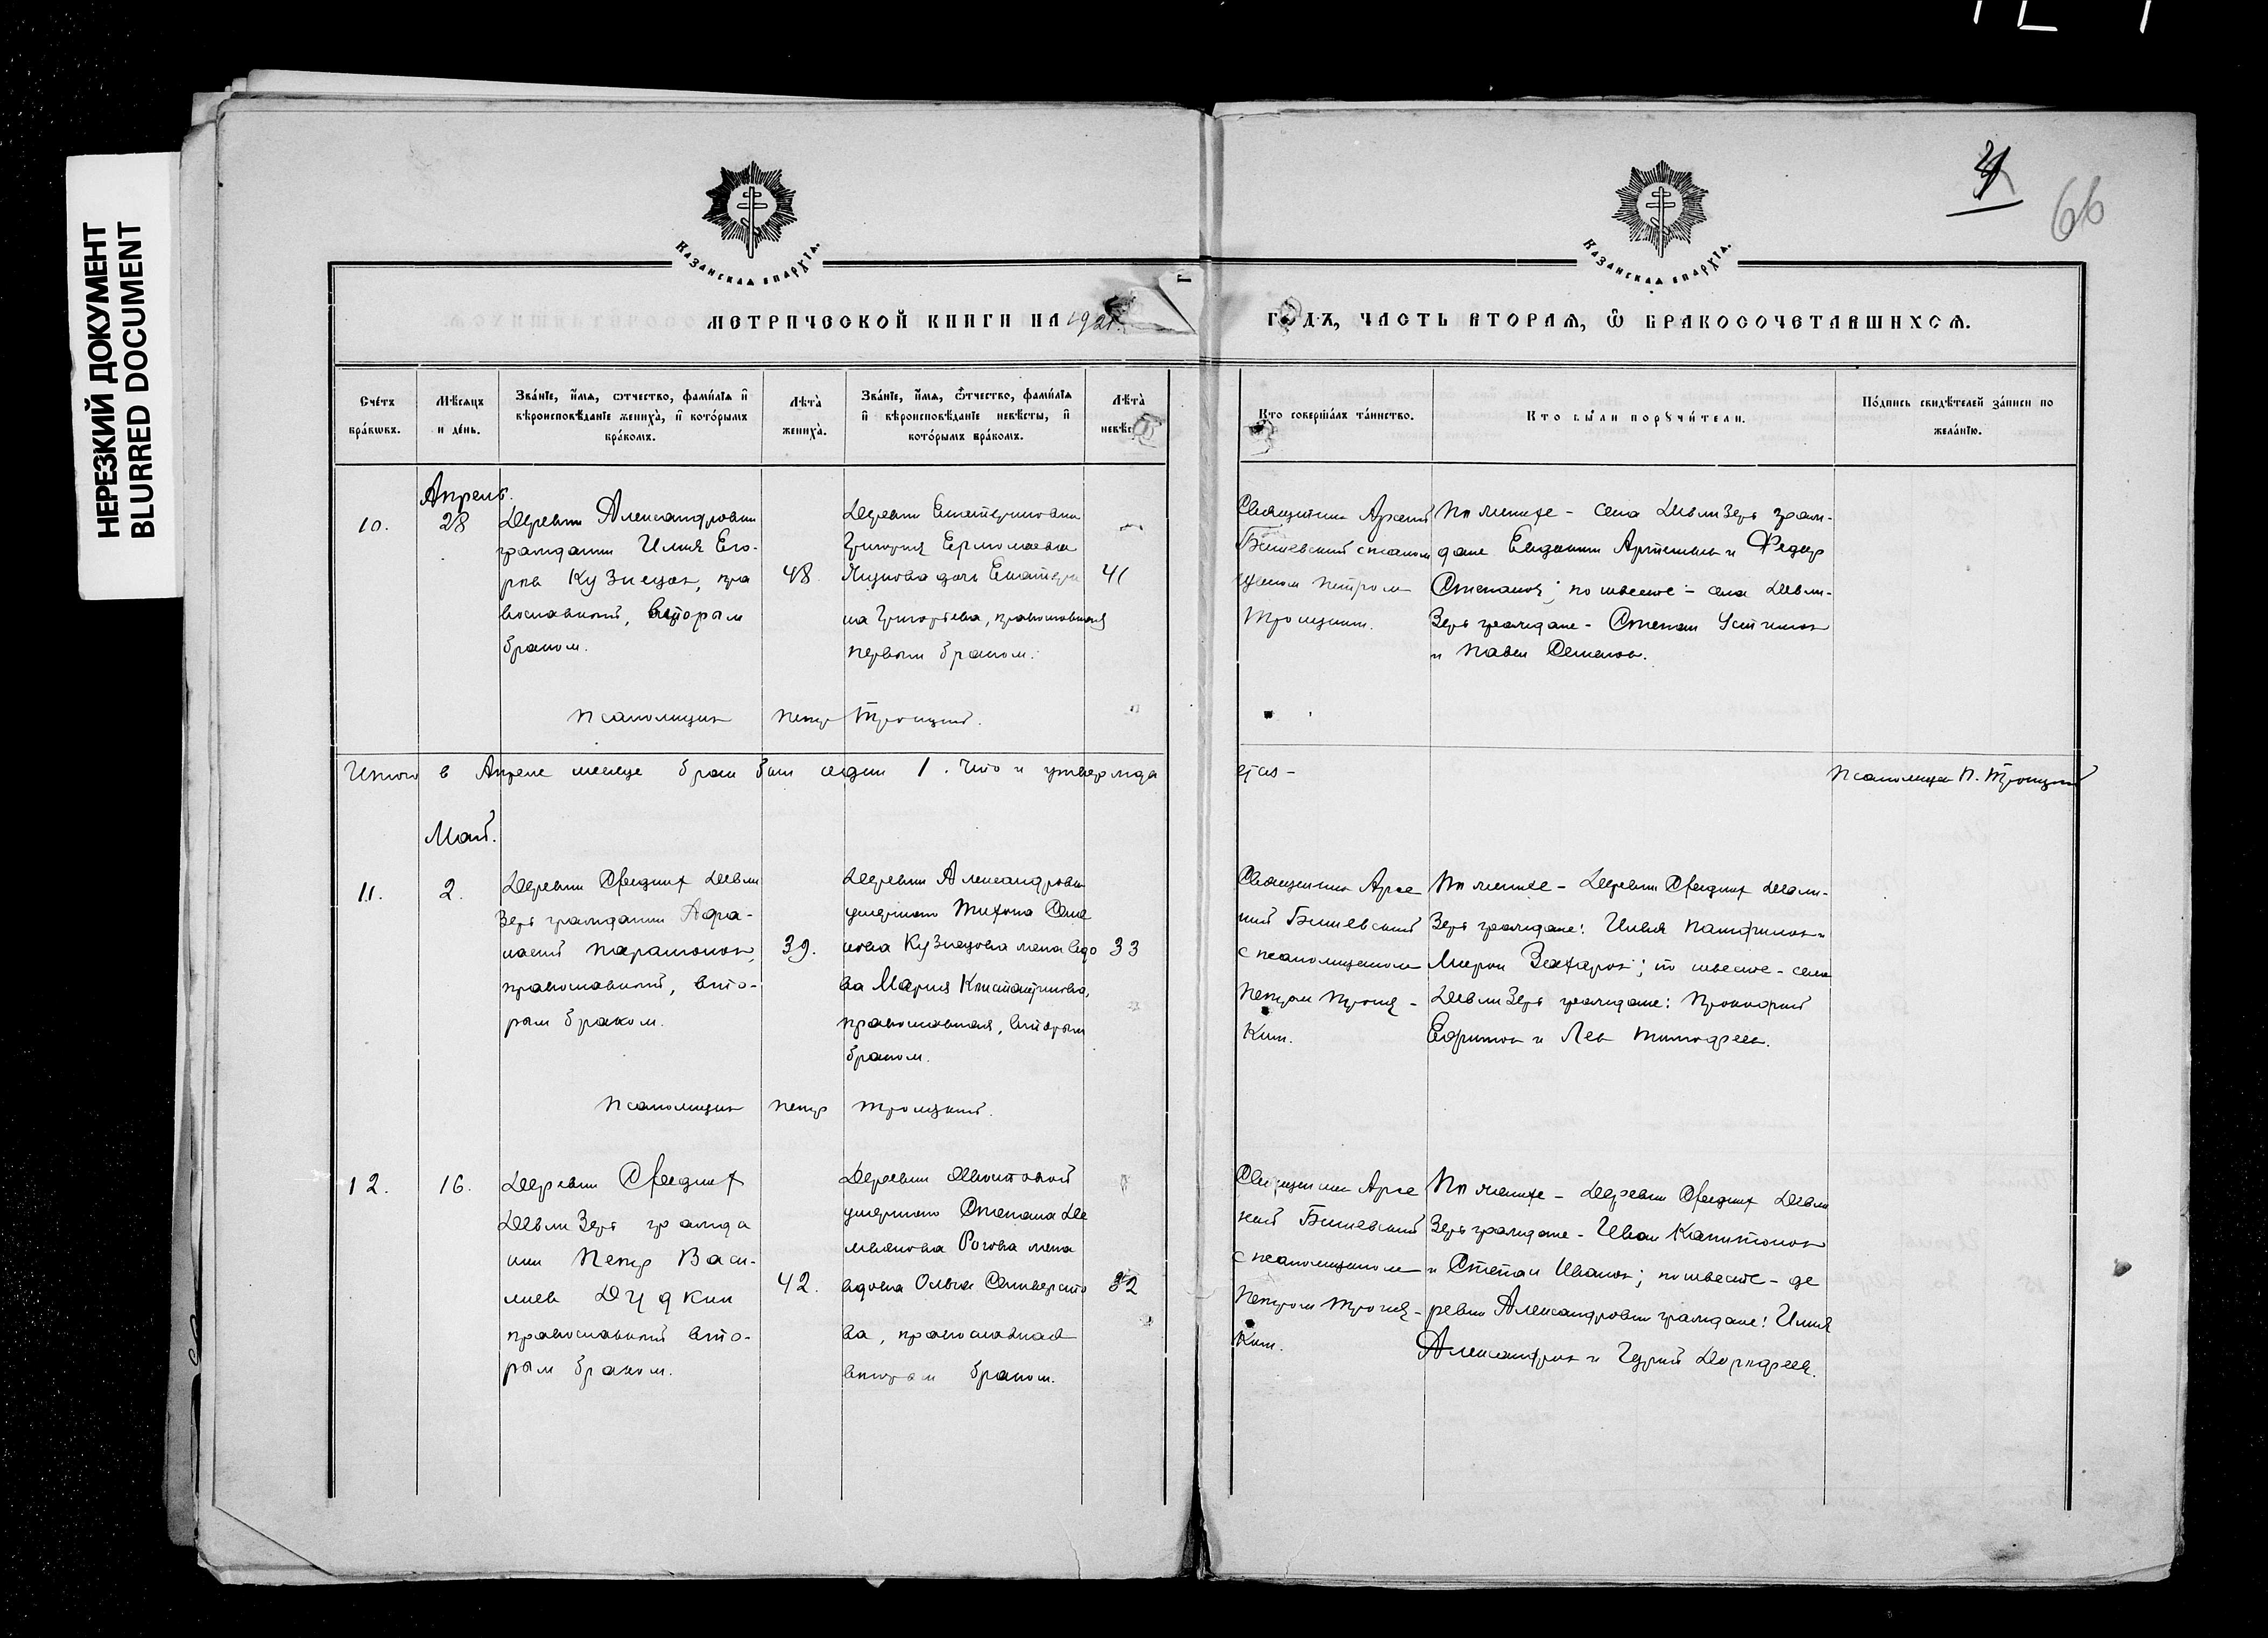 НЕРЕЗКИЙ ДОКУМЕНТ
BLURRED DOCUMENT
66
Казанская епархїа.
Казанская епархїа.
МЕТРИЧЕСКОЙ КНИГИ НА 1921
ГОДЪ, ЧАСТЬ ВТОРАЯ, Ѡ БРАКОСОЧЕТАВШИХСЯ.
Сче́тъ бра́кωвъ.
Мѣ́сяцъ и де́нь.
Зва́нїе, и́мя, ѻтчество, фами́лїя и вѣроисповѣ́данїе жениха̀, и кото́рымъ бра́комъ.
Лѣта̀ жениха̀.
Зва́нїе, и́мя, ѻтчество, фами́лїя и вѣроисповѣ́данїе невѣ́сты, и кото́рымъ бра́комъ.
Лѣта̀ невѣс
Кто соверша́лъ та́инство.
Кто бы́ли порꙋчи́тели.
По́дпись свидѣ́телей за́писи по жела́нїю.
Апрель.
10.
28
Деревни Александровки
гражданин Илия Его-
ров Кузнецов, пра
вославный, вторым
браком.
48
Деревни Екатериновки
Григория Ермолаева
дочь Екатери
на Григорьева, православная
первым браком.
41
Священник Арсений
Бишевский с псалом
щиком Петром
Троицким.
По женихе - села Девлизерь граж-
дане Евдоким Артемьев и Федор
Степанов; по невесте - села Девли-
зерь граждане - Степан Устинов
и Павел Семенов.
Псаломщик Петр Троицкий.
Итого в Апреле месяце брак был один 1. Что и утвержда
ется -
Псаломщик П. Троицкий
Май.
11.
2.
Деревни Средних Девли
зерь гражданин Афа-
насий Парамонов,
православный, вто-
рым браком.
39.
Деревни Александровки
умершего Тихона Семе
нова Кузнецова жена вдо
ва Мария Константинова,
православная, вторым
браком.
33
Священник Арсе
ний Бишевский
с псаломщиком
Петром Троиц-
ким.
По женихе - Деревни Средних Девли-
зерь граждане: Илья Панфилов и
Мирон Захаров; по невесте - села
Девлизерь граждане: Прокофий
Ефимов и Лев Тимофеев.
Псаломщик Петр Троицкий.
12.
16.
Деревни Средних
Девлизерь гражда
нин Петр Васи-
лиев Дудкин
православный вто-
рым браком.
42.
Деревни
умершего Степана Де
мьянова Рогова жена
вдова Ольга Селиверсто
ва, православная
вторым браком.
32
Священник Арсе
ний Бишевский
с псаломщиком
Петром Троиц-
ким.
По женихе - Деревни Средних Девли
зерь граждане - Иван Капитонов
и Степан Иванов; по невесте - де
ревни Александровки граждане: Илия
Александров и Гурий Дорофеев.